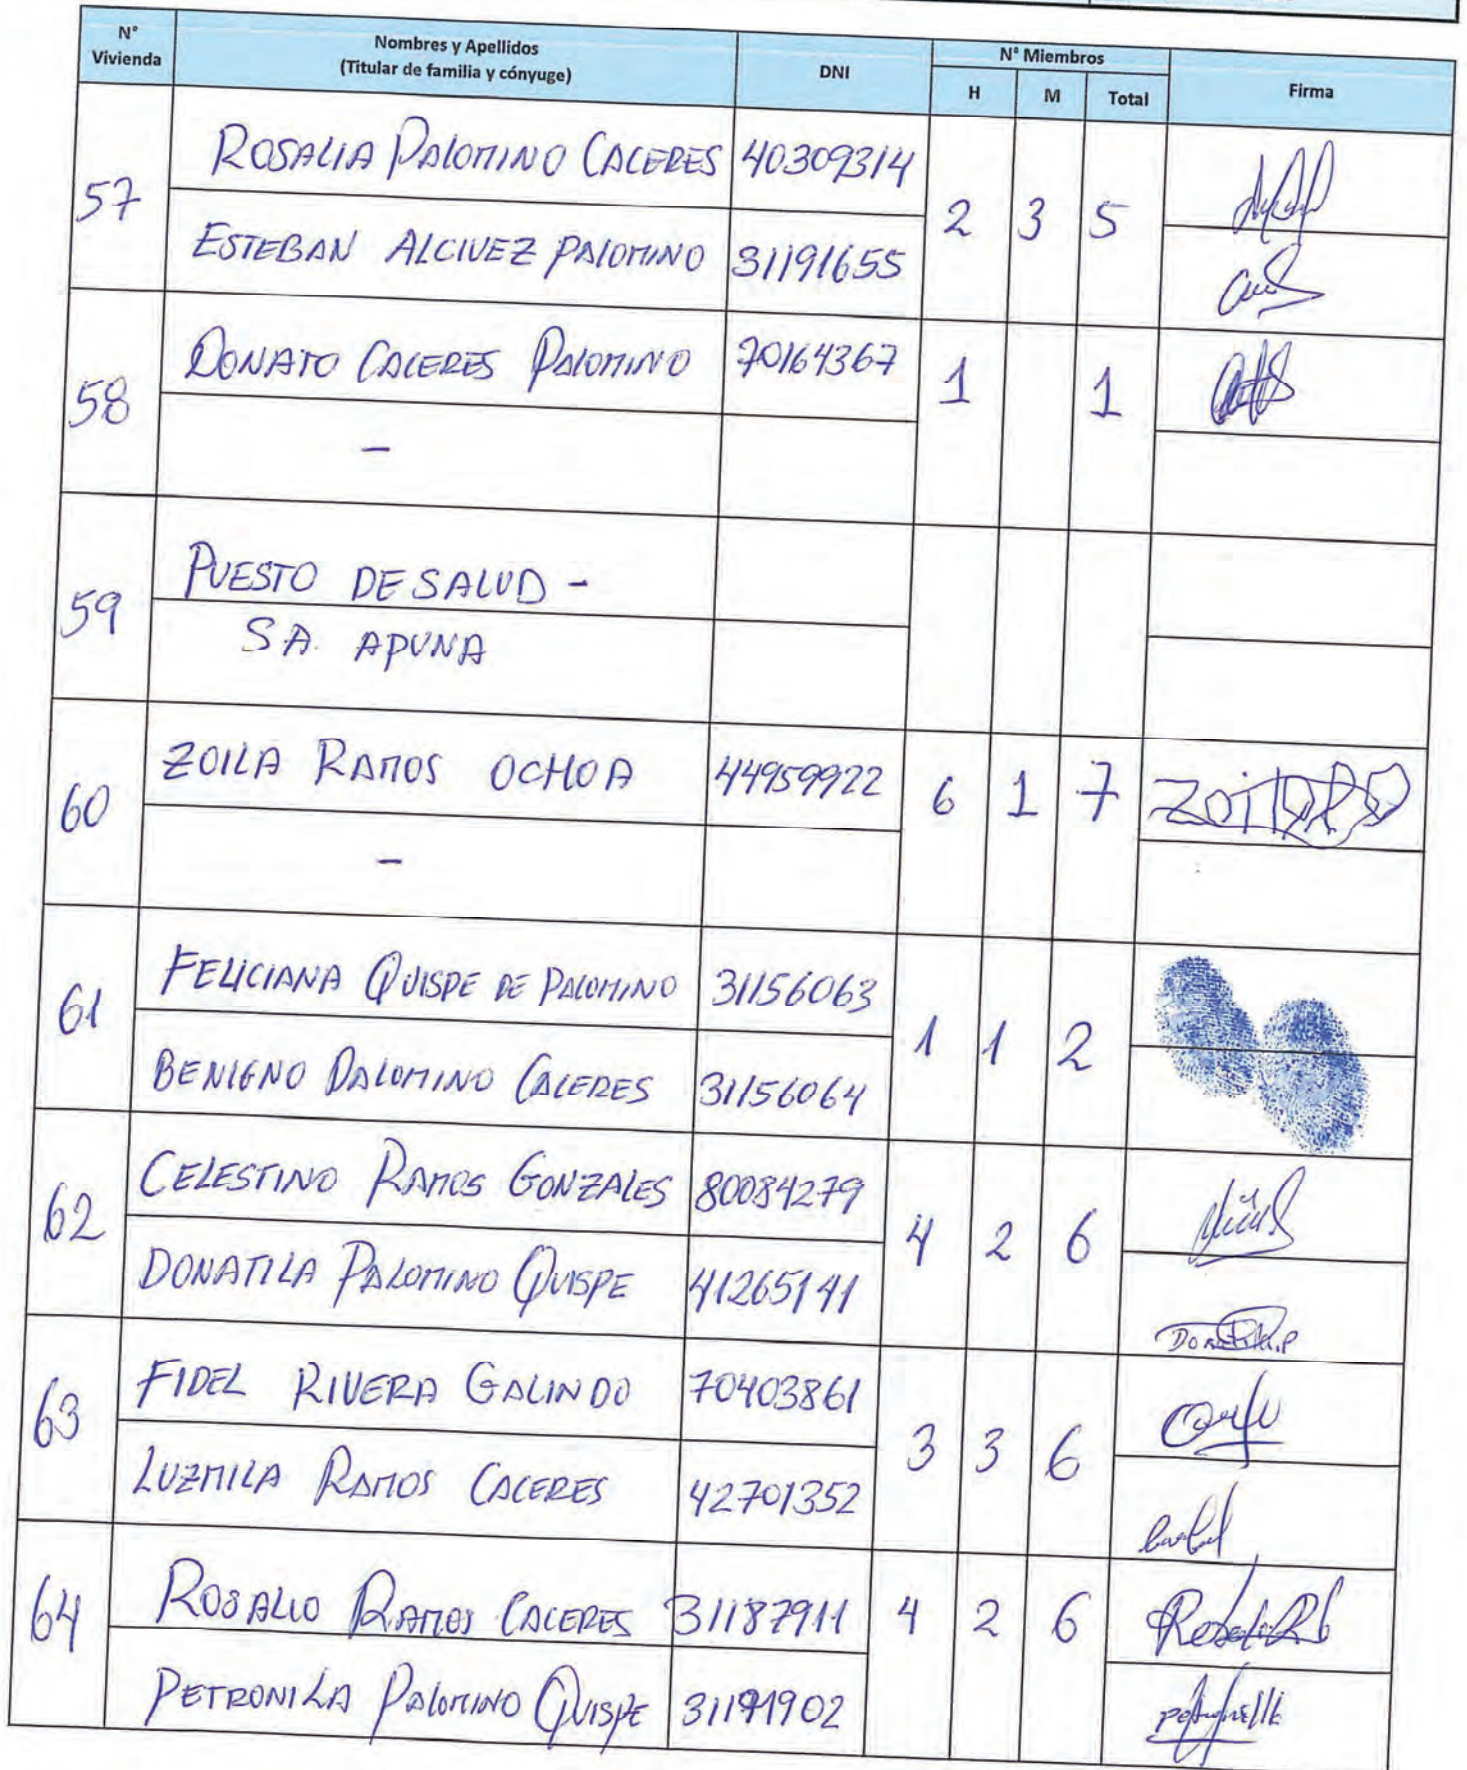 N° Vivienda Nombres y Apellidos (Titular de familia y cónyuge) DNI N° Miembros H M Total Firma
57 ROSALIA PALOMINO CACERES 40309314 2 3 5
ESTEBAN ALCIVEZ PALOMINO 31191655
58 DONATO CACERES PALOMINO 70164367 1 1
-
59 PUESTO DE SALUD -
SA. APUNA
60 ZOILA RAMOS OCHOA 44959922 6 1 7
-
61 FELICIANA QUISPE DE PALOMINO 31156063 1 1 2
BENIGNO PALOMINO CACERES 31156064
62 CELESTINO RAMOS GONZALES 80084279 4 2 6
DONATILA PALOMINO QUISPE 41265141
63 FIDEL RIVERA GALINDO 70403861 3 3 6
LUZMILA RAMOS CACERES 42701352
64 ROSALIO RAMOS CACERES 31187911 4 2 6
PETRONILA PALOMINO QUISPE 31191902